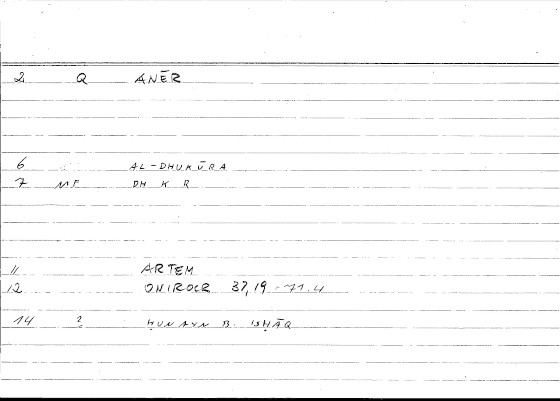 2 Q ANĒR
6 AL-DHUKŪRA
7 MF DH K R
11 ARTEM
12 ONIROCR 37,19 - 71.4
14 ? ḤUNAYN B. ISḤĀQ